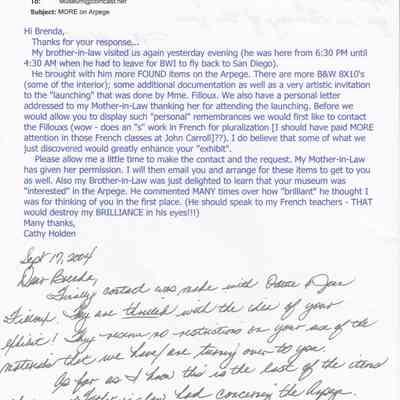 To: Museum@comcast.net
Subject: MORE on Arpege
Hi Brenda,
Thanks for your response...
My brother-in-law visited us again yesterday evening (he was here from 6:30 PM until
4:30 AM when he had to leave for BWI to fly back to San Diego).
He brought with him more FOUND items on the Arpege. There are more B&W 8X10's
(some of the interior); some additional documentation as well as a very artistic invitation
to the "launching" that was done by Mme. Filloux. We also have a personal letter
addressed to my Mother-in-Law thanking her for attending the launching. Before we
would allow you to display such "personal" remembrances we would first like to contact
the Fillouxs (wow - does an "s" work in French for pluralization [I should have paid MORE
attention in those French classes at John Carroll]??). I do believe that some of what we
just discovered would greatly enhance your "exhibit".
Please allow me a little time to make the contact and the request. My Mother-in-Law
has given her permission. I will then email you and arrange for these items to get to you
as well. Also my Brother-in-Law was just delighted to learn that your museum was
"interested" in the Arpege. He commented MANY times over how "brilliant" he thought I
was for thinking of you in the first place. (He should speak to my French teachers - THAT
would destroy my BRILLIANCE in his eyes!!!)
Many thanks,
Cathy Holden
Sept 17, 2004
Dear Brenda,
Finally contact was made with Odette & Jean
Filloux. They are thrilled with the idea of your
exhibit! They receive no restrictions on your use of the
materials that we have/are turning over to you.
As far as I know this is the last of the items
in-law had concerning the Arpege.